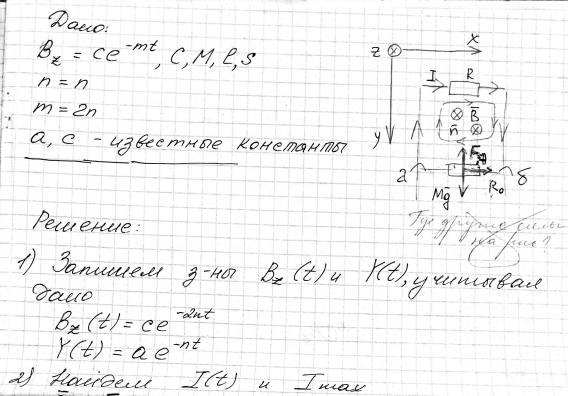 Дано:
B_z = ce^{-mt}, C, M, l, s
n = n
m = 2n
a, c - известные константы
z ⊗ x
y
I R
n̄ B̄
а б
Mḡ R₀
Где другие силы
на рис?
Решение:
1) Запишем з-ны B_z(t) и Y(t), учитывая
дано
B_z(t) = ce^{-2nt}
Y(t) = ae^{-nt}
2) Найдем I(t) и Imax